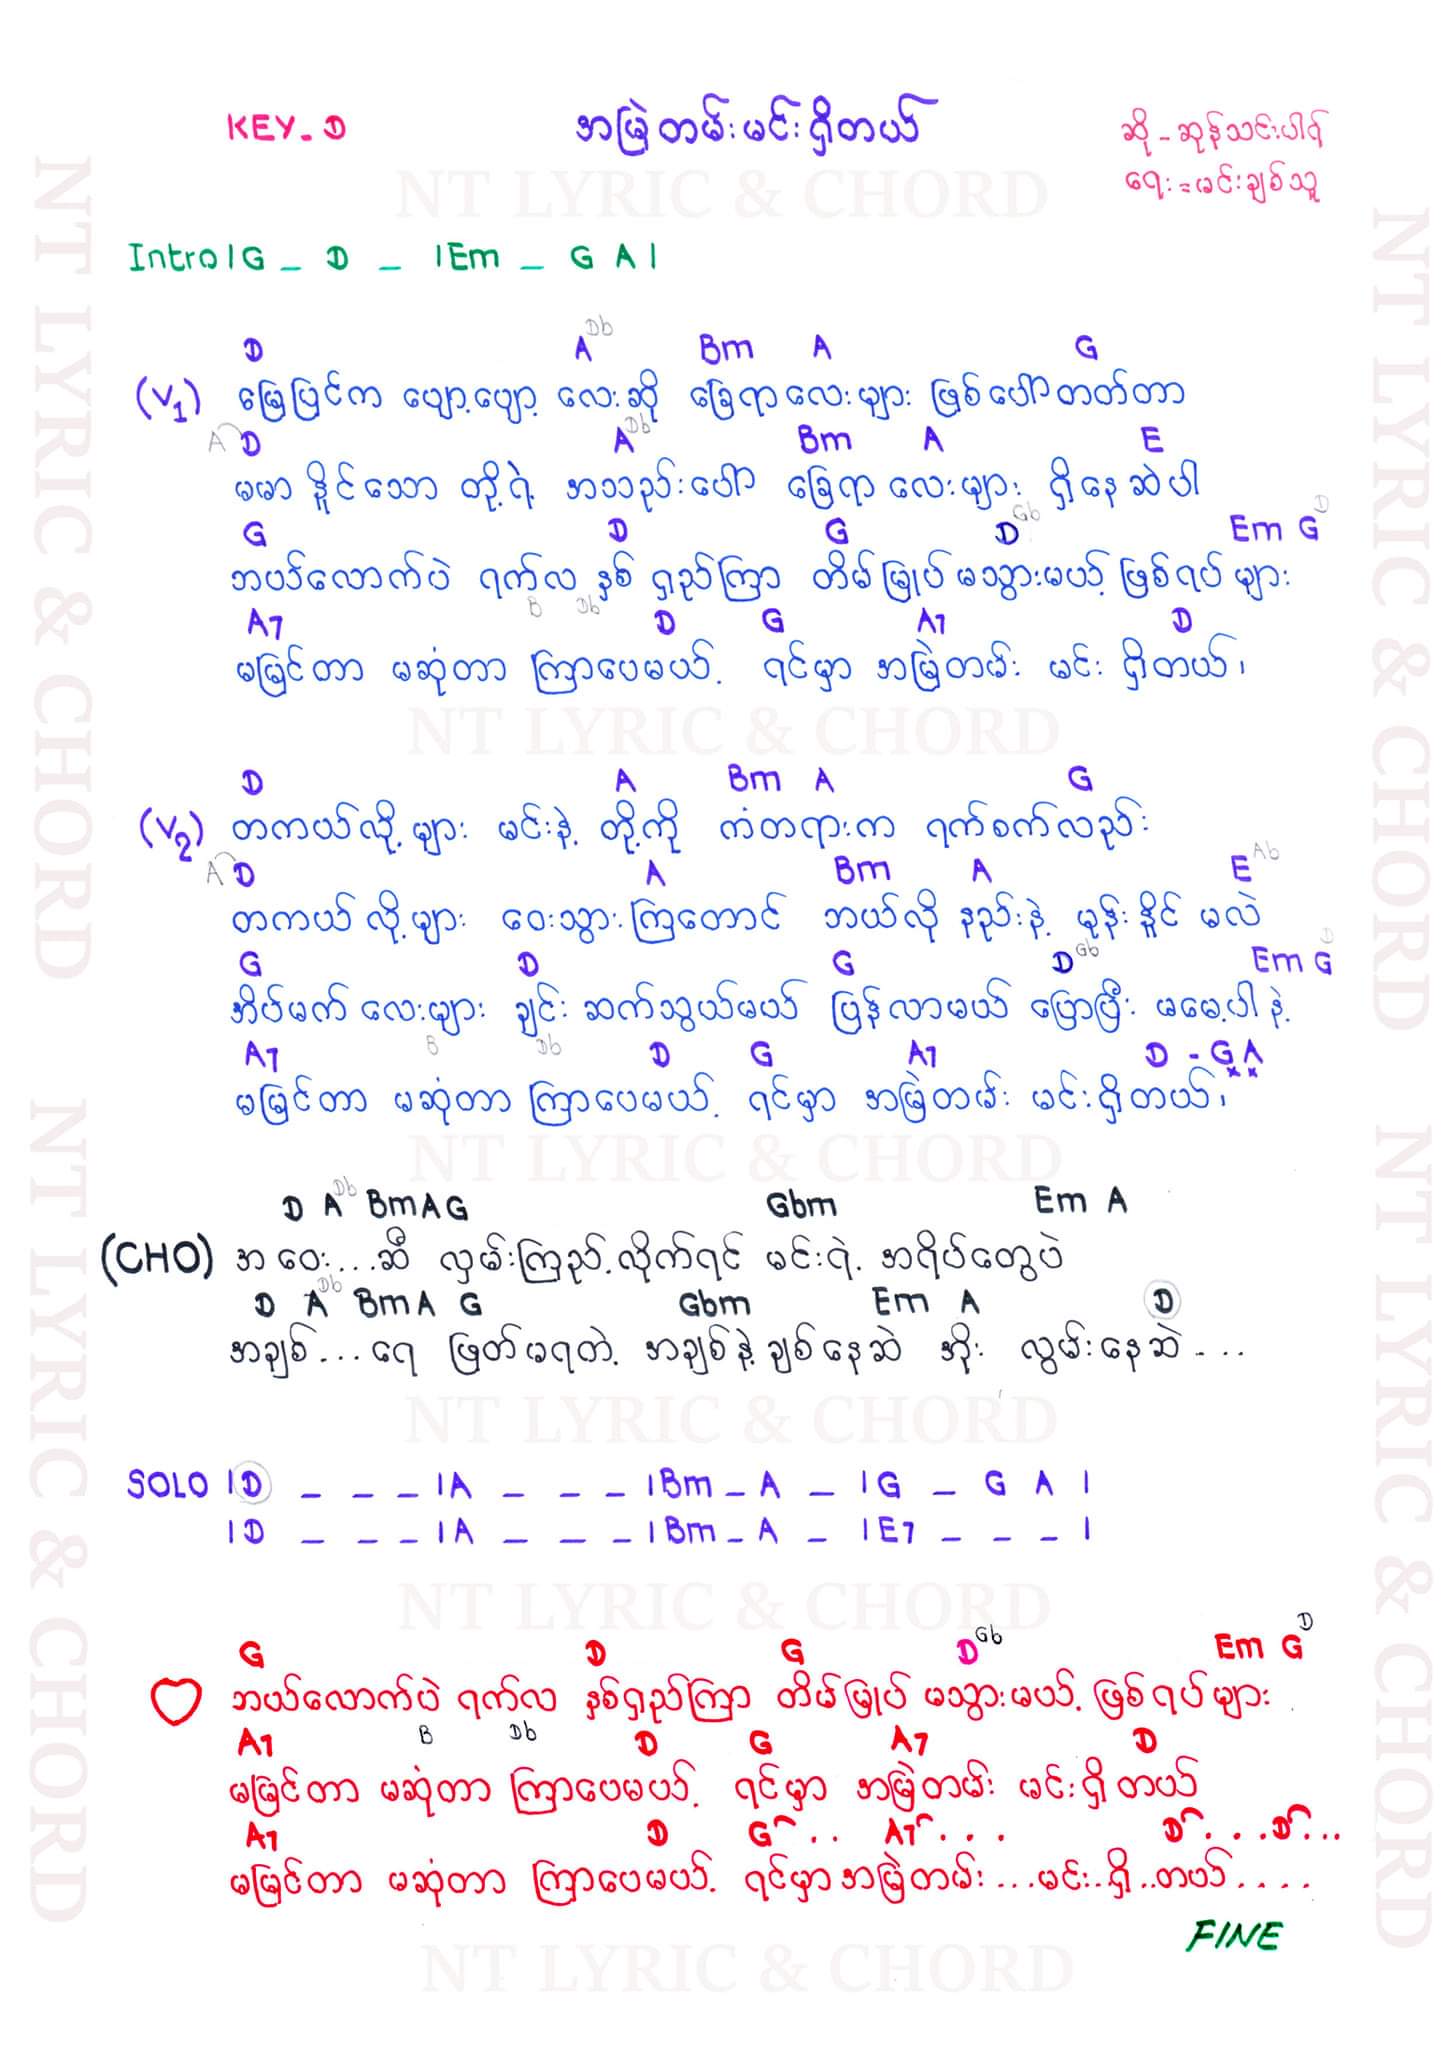 KEY - D
အမြဲတမ်းမင်းရှိတယ်
ဆို - ဆုန်သင်းပါရ်
ရေး = မင်းချစ်သူ
NT LYRIC & CHORD
Intro | G _ D _ | Em _ G A |
D A Db Bm A G
(V1) မြေပြင်က ပျော့ပျော့ လေးဆို ခြေရာလေးများ ဖြစ်ပေါ်တတ်တာ
A D A Db Bm A E
မမာ နိူင်သော တို့ရဲ့ အသည်းပေါ် ခြေရာ လေးများ ရှိနေဆဲပါ
G D G D Gb Em G D
ဘယ်လောက်ပဲ ရက်လ နှစ် ရှည်ကြာ တိမ်မြုပ် မသွားမယ့် ဖြစ်ရပ် များ
A7 B Db D G A7 D
မမြင်တာ မဆုံတာ ကြာပေမယ့် ရင်မှာ အမြဲတမ်း မင်း ရှိတယ်၊
NT LYRIC & CHORD
D A Bm A G
(V2) တကယ်လို့ များ မင်းနဲ့ တို့ကို ကံတရားက ရက်စက်လည်း
A D A Bm A E Ab
တကယ် လို့များ ဝေးသွားကြတောင် ဘယ်လို နည်းနဲ့ မုန်းနိူင် မလဲ
G D G D Gb Em G D
အိပ်မက် လေးများ ချင်း ဆက်သွယ်မယ် ပြန်လာမယ် ပြောပြီး မမေ့ပါ နဲ့
A7 B Db D G A7 D - G A
မမြင်တာ မဆုံတာ ကြာပေမယ့် ရင်မှာ အမြဲတမ်း မင်းရှိတယ်၊
NT LYRIC & CHORD
D A Db Bm A G Gbm Em A
(CHO) အဝေး...ဆီ လှမ်းကြည့်လိုက်ရင် မင်းရဲ့ အရိပ်တွေပဲ
D A Db Bm A G Gbm Em A D
အချစ်...ရေ ဖြတ်မရတဲ့ အချစ်နဲ့ ချစ်နေဆဲ အိုး လွမ်းနေဆဲ....
NT LYRIC & CHORD
SOLO | D _ _ _ | A _ _ _ | Bm _ A _ | G _ G A |
| D _ _ _ | A _ _ _ | Bm _ A _ | E7 _ _ _ |
NT LYRIC & CHORD
G D G D Gb Em G D
ဘယ်လောက်ပဲ ရက်လ နှစ်ရှည်ကြာ တိမ်မြုပ် မသွားမယ့် ဖြစ်ရပ်များ
A7 B Db D G A7 D
မမြင်တာ မဆုံတာ ကြာပေမယ့် ရင်မှာ အမြဲတမ်း မင်းရှိတယ်
A7 D G .. A7 ... D ... D ...
မမြင်တာ မဆုံတာ ကြာပေမယ့် ရင်မှာအမြဲတမ်း ...မင်း.ရှိ..တယ်....
FINE
NT LYRIC & CHORD
NT LYRIC & CHORD
NT LYRIC & CHORD
NT LYRIC & CHORD
NT LYRIC & CHORD